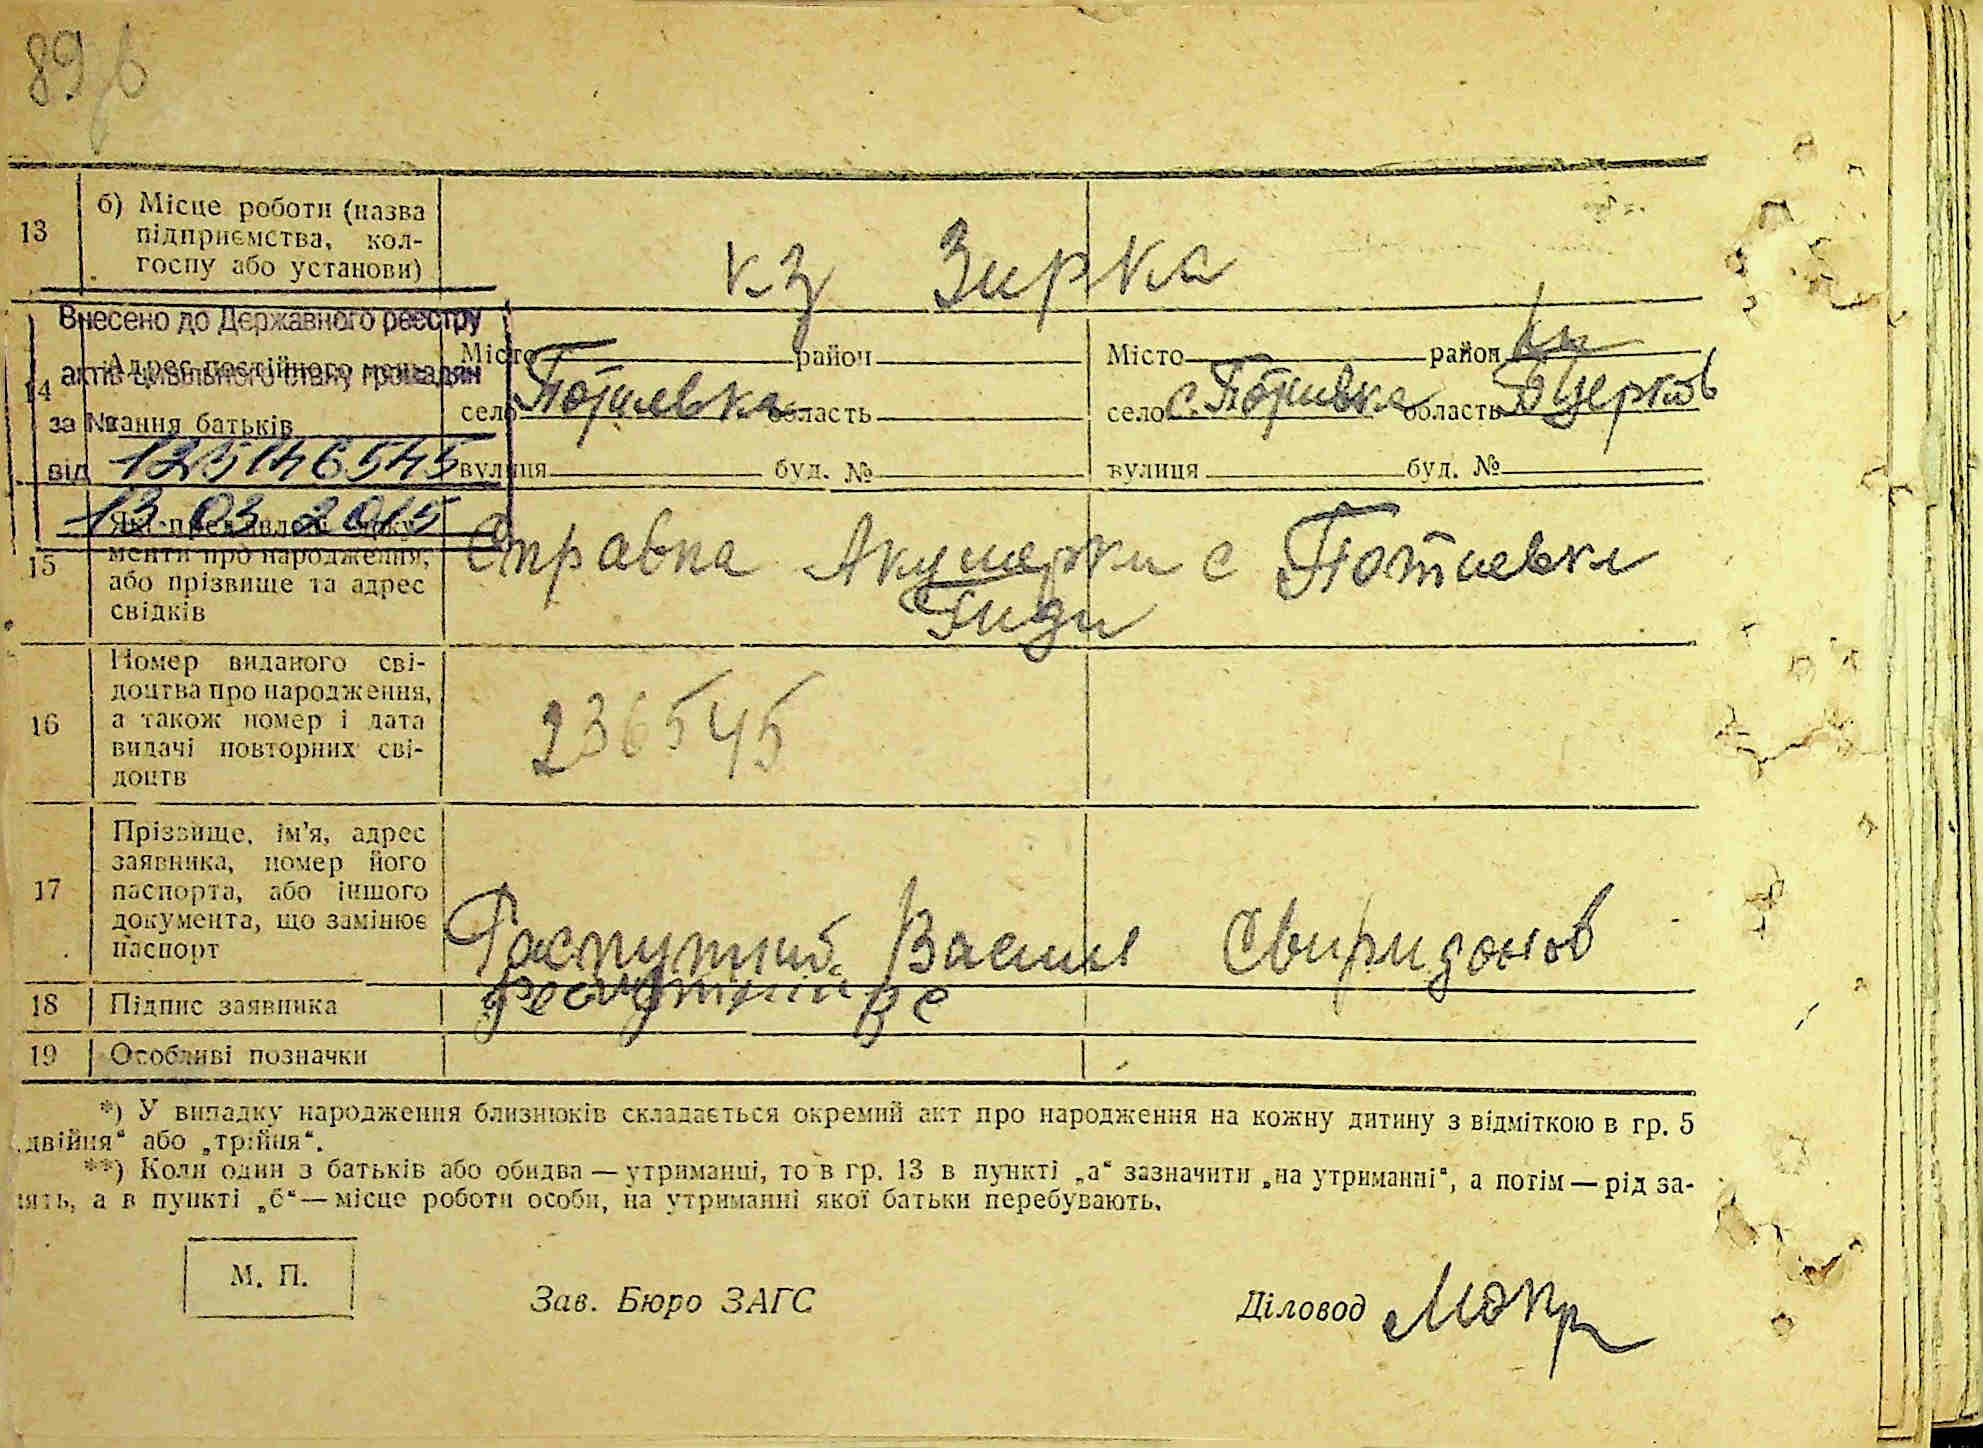 89
13
б) Місце роботи (назва
підприємства, кол-
госпу або установи)
кз Зирка
Внесено до Державного реєстру
актів цивільного стану громадян
за №
125146545
від
13 03 2015
14
Адрес постійного меш-
кання батьків
Місто район
село Потиевка область
вулиця буд. №
Місто район
село с. Потиивка область Б Церков
вулиця буд. №
15
Які пред'явлені доку-
менти про народження,
або прізвище та адрес
свідків
Справка Акушерки с Потиевки
Гиди
16
Номер виданого сві-
доцтва про народження,
а також номер і дата
видачі повторних сві-
доцтв
236545
17
Прізвище, ім'я, адрес
заявника, номер його
паспорта, або іншого
документа, що замінює
паспорт
Распутний Васил Свиридонов
18
Підпис заявника
19
Особливі позначки
*) У випадку народження близнюків складається окремий акт про народження на кожну дитину з відміткою в гр. 5
„двійня“ або „трійня“.
**) Коли один з батьків або обидва — утриманці, то в гр. 13 в пункті „а“ зазначити „на утриманні“, а потім — рід за-
нять, а в пункті „б“ — місце роботи особи, на утриманні якої батьки перебувають.
М. П.
Зав. Бюро ЗАГС
Діловод